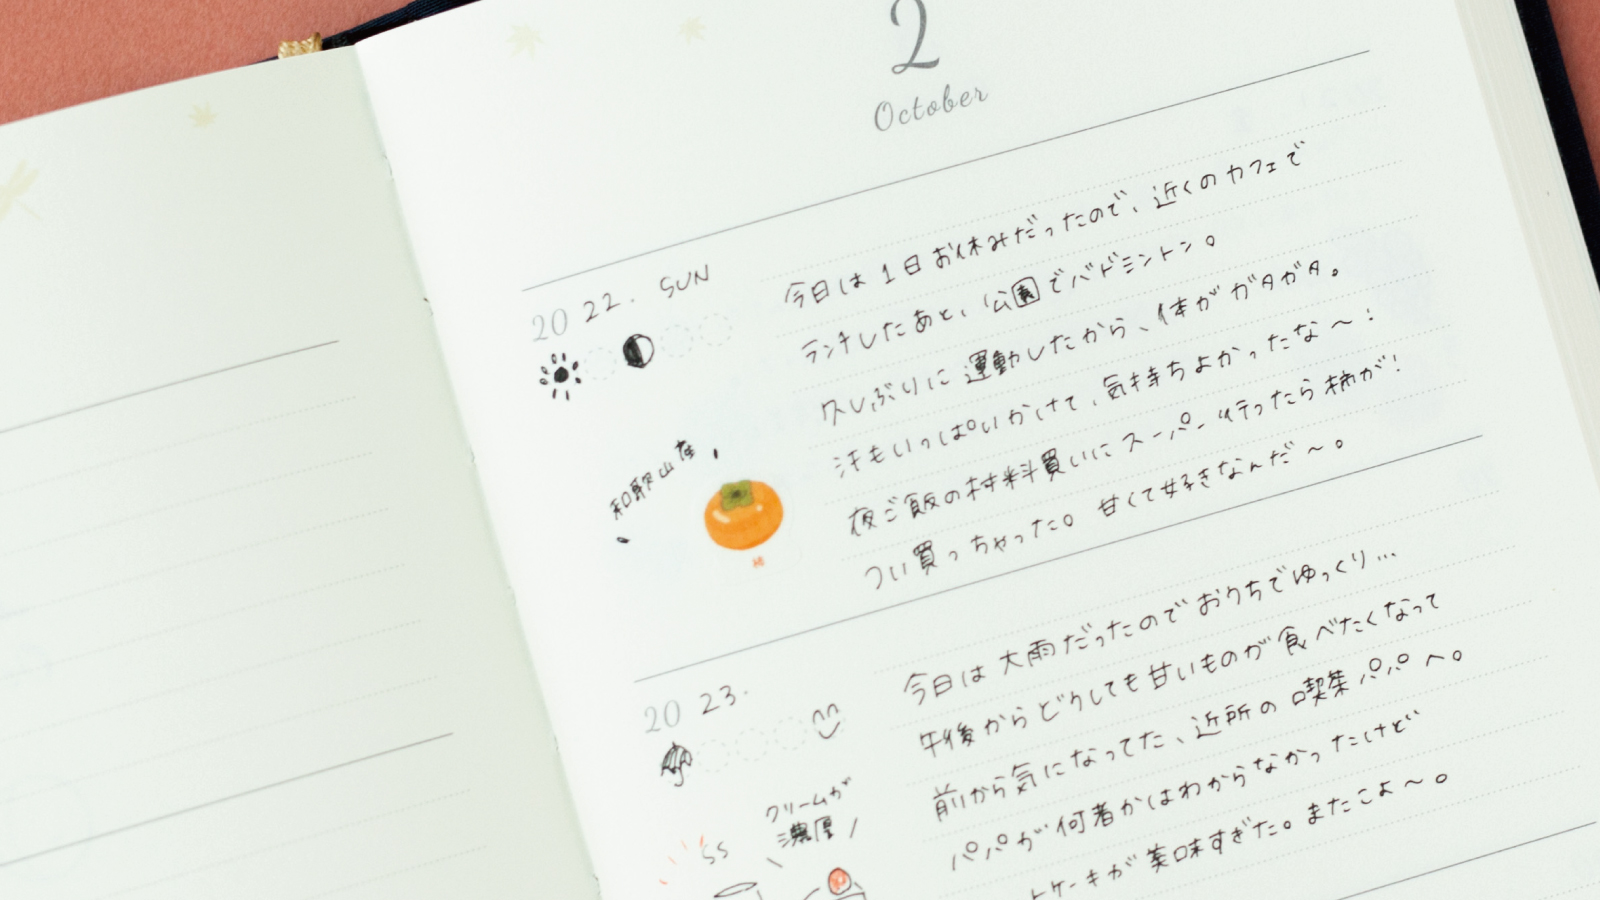 2
October
2022. SUN
今日は1日お休みだったので、近くのカフェで
ランチしたあと、公園でバドミントン。
久しぶりに運動したから、体がガタガタ。
汗もいっぱいかけて、気持ちよかったな〜！
夜ご飯の材料買いにスーパー行ったら柿が！
つい買っちゃった。甘くて好きなんだ〜。
和歌山産
2023.
今日は大雨だったのでおうちでゆっくり…
午後からどうしても甘いものが食べたくなって
前から気になってた、近所の喫茶パパへ。
パパが何者かはわからなかったけど
ケーキが美味すぎた。またこよ〜。
クリームが
濃厚